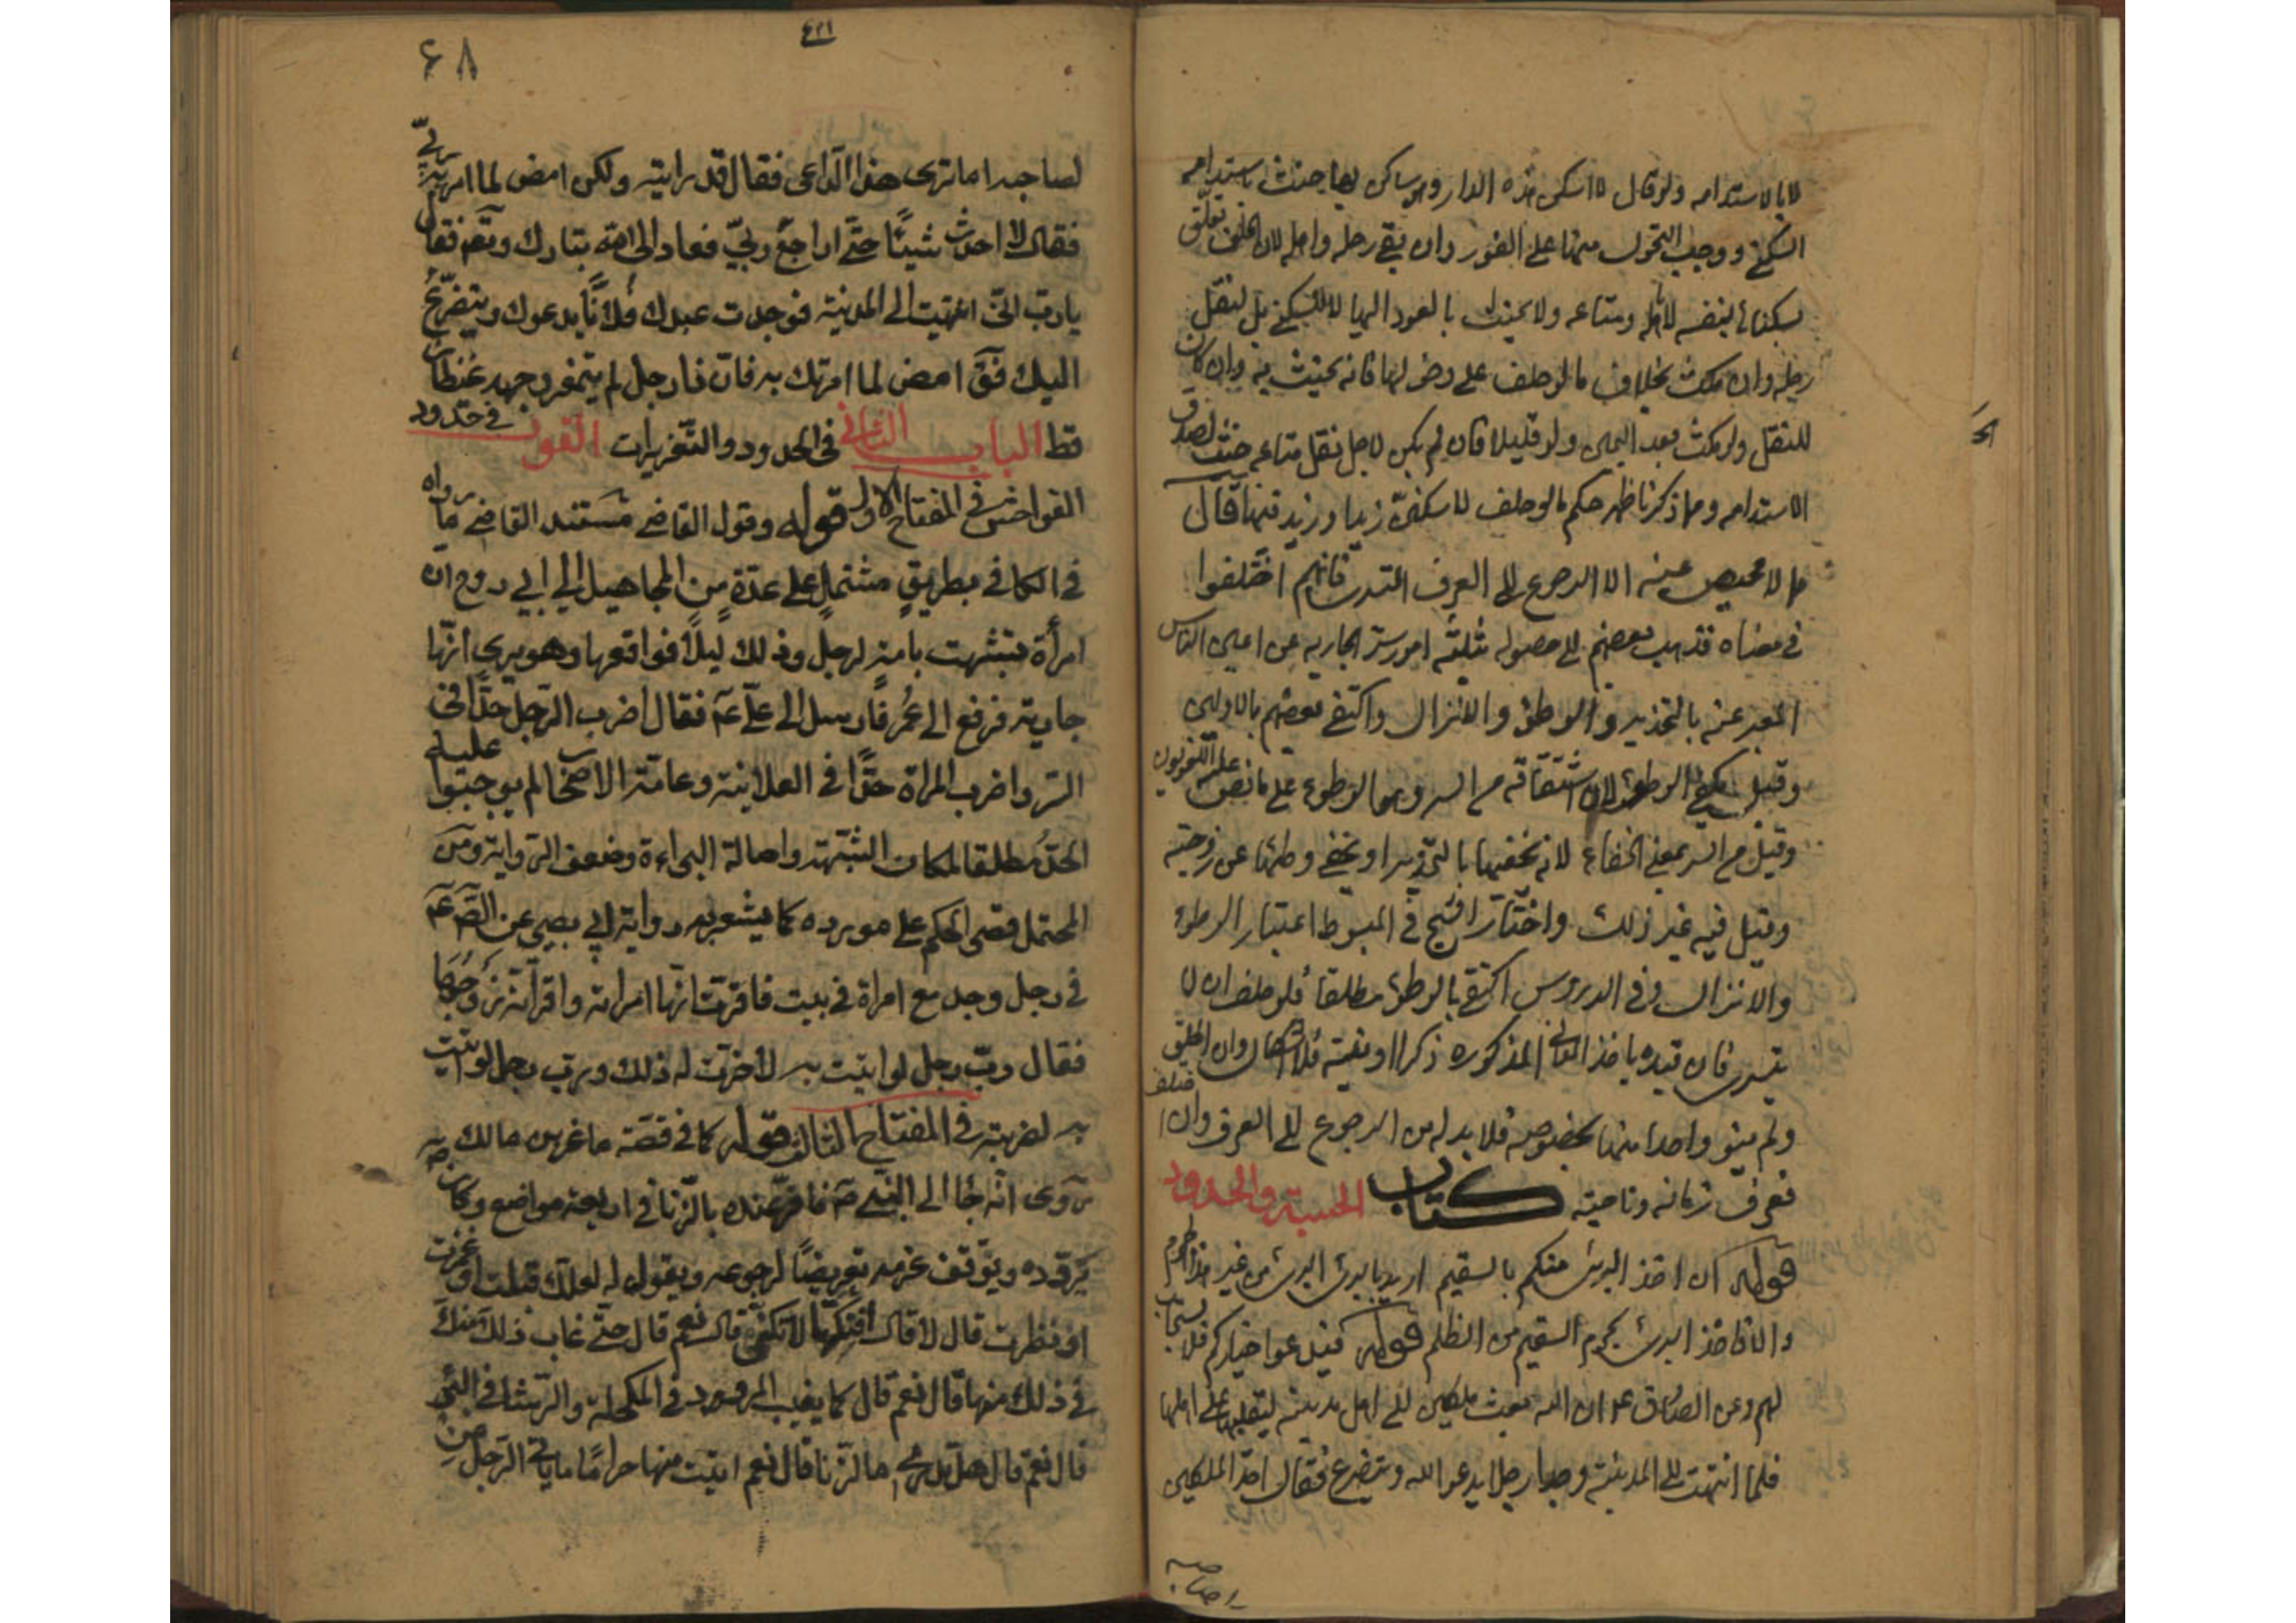 لا بالاستدامه ولو قال لا اسكن هذه الدار وهو ساكن بها حنث باستدامه
السكنى ووجب التحول منها على الفور وان بقى رحله واهله لان الحلف تعلق
بسكناه بنفسه لا اهله ومتاعه ولا يحنث بالعود اليها لا للسكنى بل لنقل
رحله وان مكث بخلاف ما لو حلف على دخولها فانه يحنث به وان كان
للنقل ولو مكث بعد اليمين ولو قليلا فان لم يكن لاجل نقل متاعه حنث لصدق
الاستدامه ومما ذكرنا ظهر حكم ما لو حلف لا ساكنت زيدا وزيد فيها قال
مما لا محيص عنه الا الرجوع الى العرف التسرى فانهم اختلفوا
في معناه فذهب بعضهم الى حصوله بثلثة امور ستر الجاريه عن اعين الناس
المعبر عنه بالتخدير والوطؤ والانزال واكتفى بعضهم بالاولين
وقيل يكفى الوطؤ لان اشتقاقه من السر وهو الوطوء على ما نص عليه اللغويون
وقيل من السر بمعنى الخفاء لانه يخفيها بالتخدير او يخفى وطئها عن زوجته
وقيل فيه غير ذلك واختار الشيخ في المبسوط اعتبار الوطوء
والانزال وفي الدروس اكتفى بالوطؤ مطلقا فلو حلف ان لا
يتسرى فان قيده باحد المعانى المذكوره ذكرا او نية فلا اشكال وان اطلق
ولم ينو واحدا منها بخصوصه فلا بد له من الرجوع الى العرف وان اختلف
فعرف زمانه وناحيته كتاب الحسبة والحدود
قوله ان اخذ البرئ منكم بالسقيم اريد بالبرئ البرئ من غير هذا الجرم
والا فاخذ البرئ بجرم السقيم من الظلم قوله فيدعوا خياركم فلا يستجاب
لهم وعن الصادق ع ان الله بعث ملكين الى اهل مدينة ليقلباها على اهلها
فلما انتهيا الى المدينة وجدا رجلا يدعو الله ويتضرع فقال احد الملكين
لصاحبه
۴۲۱
۶۸
لصاحبه اما ترى هذا الداعى فقال قد رايته ولكن امض لما امر به ربى
فقال لا احدث شيئا حتى اراجع ربى فعاد الى الله تبارك وتعم فقال
يا رب انى انتهيت الى المدينة فوجدت عبدك فلانا يدعوك ويتضرع
اليك فقَ امض لما امرتك به فان ذا رجل لم يتمعر وجهه غيظا لى
قط الباب الثانى في الحدود والتعزيرات القول في حدود
الفواحش في المفتاح الاول قوله وقول القاضى مستند القاضى ما رواه
في الكافى بطريق مشتمل على عدة من المجاهيل الى ابى روح ان
امرأة تشبهت بامة لرجل وذلك ليلا فواقعها وهو يرى انها
جاريته فرفع الى عمر فارسل الى على عم فقال اضرب الرجل حدا في
السر واضرب المراة حدا في العلانية وعامة الاصحاب لم يوجبوا عليه
الحد مطلقا لمكان الشبهة واصالة البراءة وضعف الرواية ومن
المحتمل قصر الحكم على مورده كما يشعر به رواية ابى بصير عن الصَ عم
في رجل وجد مع امراة في بيت فاقرت انها امراته واقر انه زوجها
فقال رب رجل لو اتيت به لاجزت له ذلك ورب رجل لو اتيت
به لضربته في المفتاح الثالث قوله كما في قصة ماعز بن مالك
روى انه جاء الى النبى صَ فاقر عنده بالزنا في اربعة مواضع وكان ص
يردده ويوقف عزمه تعريضا لرجوعه ويقول له لعلك قبلت او غمزت
او نظرت قال لا قال افنكتها لا تكنى قال نعم قال حتى غاب ذلك منك
في ذلك منها قال نعم قال كما يغيب المرود في المكحلة والرشا في البئر
قال نعم قال هل تدرى ما الزنا قال نعم اتيت منها حراما ما ياتى الرجل من